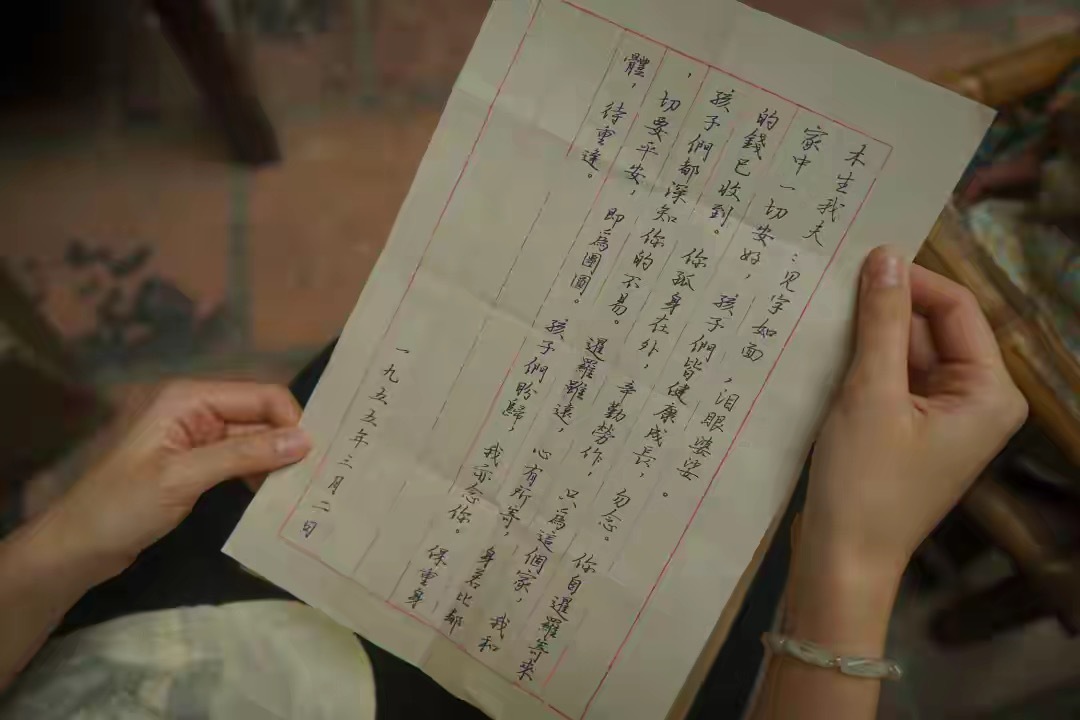 木生我夫：见字如面，泪眼婆娑。
家中一切安好，孩子們皆健康成長，勿念。你自暹羅寄來
的錢已收到。你孤身在外，辛勤勞作，只為這個家，我和
孩子們都深知你的不易。暹羅雖遠，心有所寄，身若比鄰
，切要平安，即為團圓。孩子們盼歸，我亦念你。保重身
體，待重逢。
一九五五年三月二日